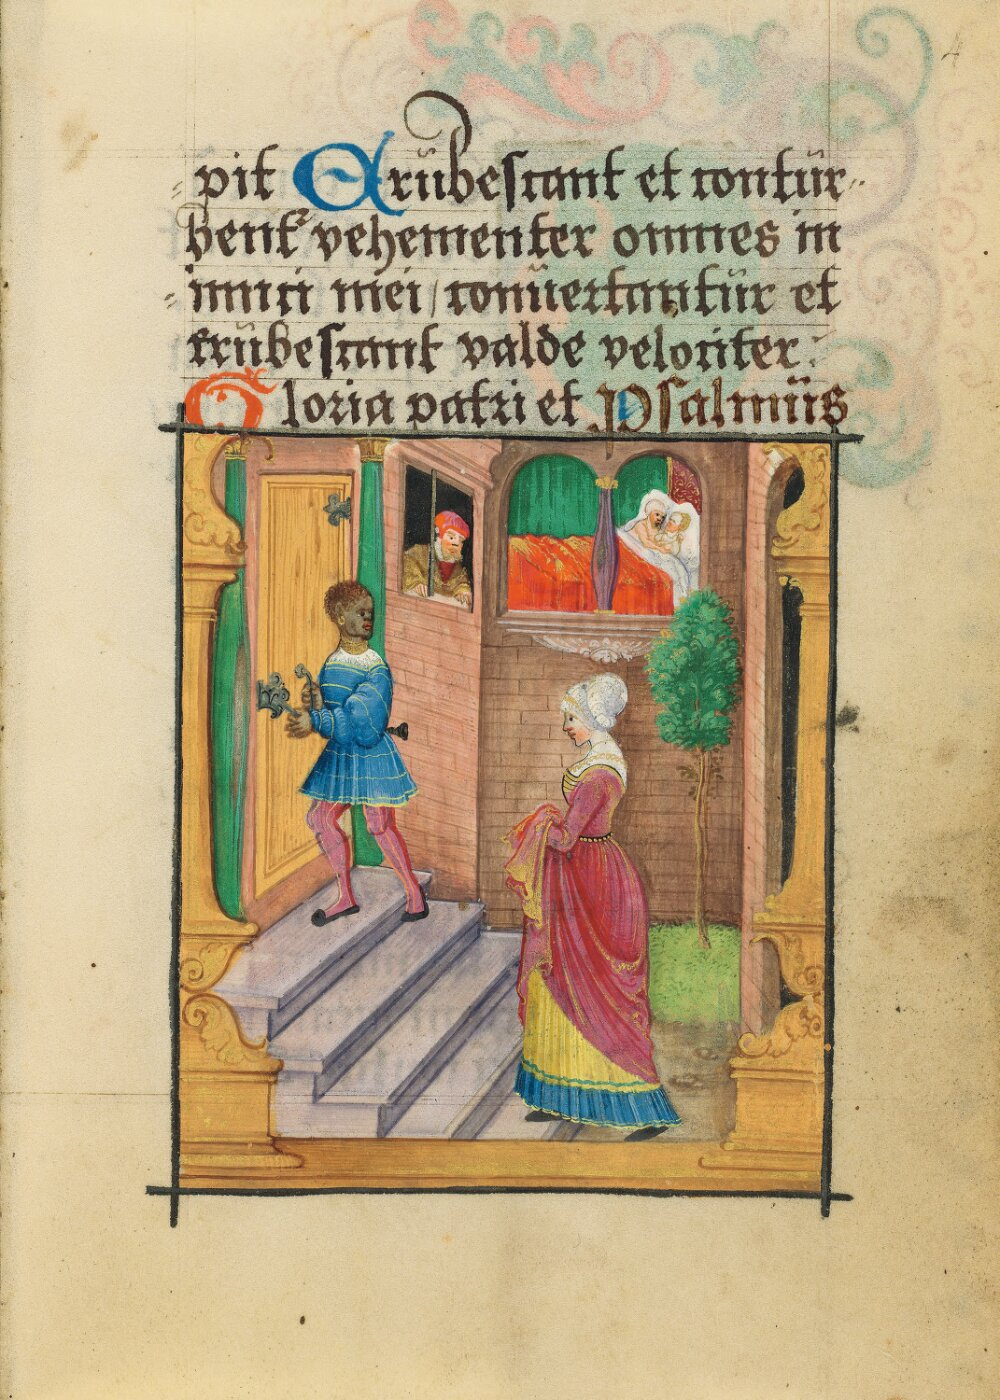 pit Erubescant et contur
bent vehementer omnes in
imici mei / convertantur et
erubescant valde velociter :
Gloria patri et Psalmus
4